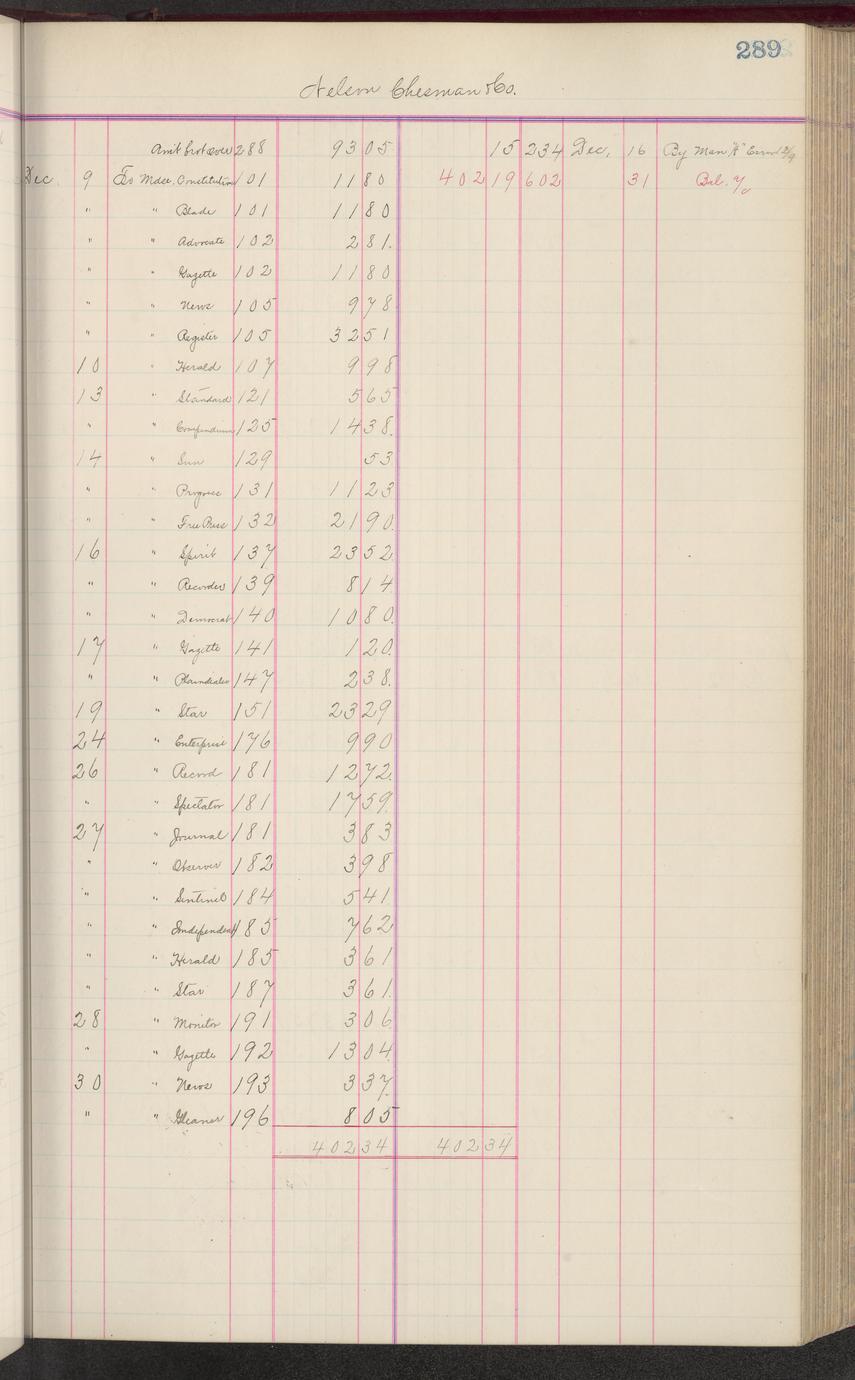 289
Nelson Chesman & Co.
Am't brot over 288 93 05 15 234 Dec. 16 By Man "A"
Dec. 9 To Mdse. Constitution 101 11 80 402 19 602 31 Bal. %
" " Blade 101 11 80
" " Advocate 102 2 81
" " Gazette 102 11 80
" " News 105 9 78
" " Register 105 32 51
10 " Herald 107 9 98
13 " Standard 121 5 65
" " Compendium 125 14 38
14 " Sun 129 53
" " Progress 131 11 23
" " Free Press 132 21 90
16 " Spirit 137 23 52
" " Recorder 139 8 14
" " Democrat 140 10 80
17 " Gazette 141 1 20
" " Plaindealer 147 2 38
19 " Star 151 23 29
24 " Enterprise 176 9 90
26 " Record 181 12 72
" " Spectator 181 17 59
27 " Journal 181 3 83
" " Observer 182 3 98
" " Sentinel 184 5 41
" " Independent 185 7 62
" " Herald 185 3 61
" " Star 187 3 61
28 " Monitor 191 3 06
" " Gazette 192 13 04
30 " News 193 3 37
" " Gleaner 196 8 05
402 34 402 34